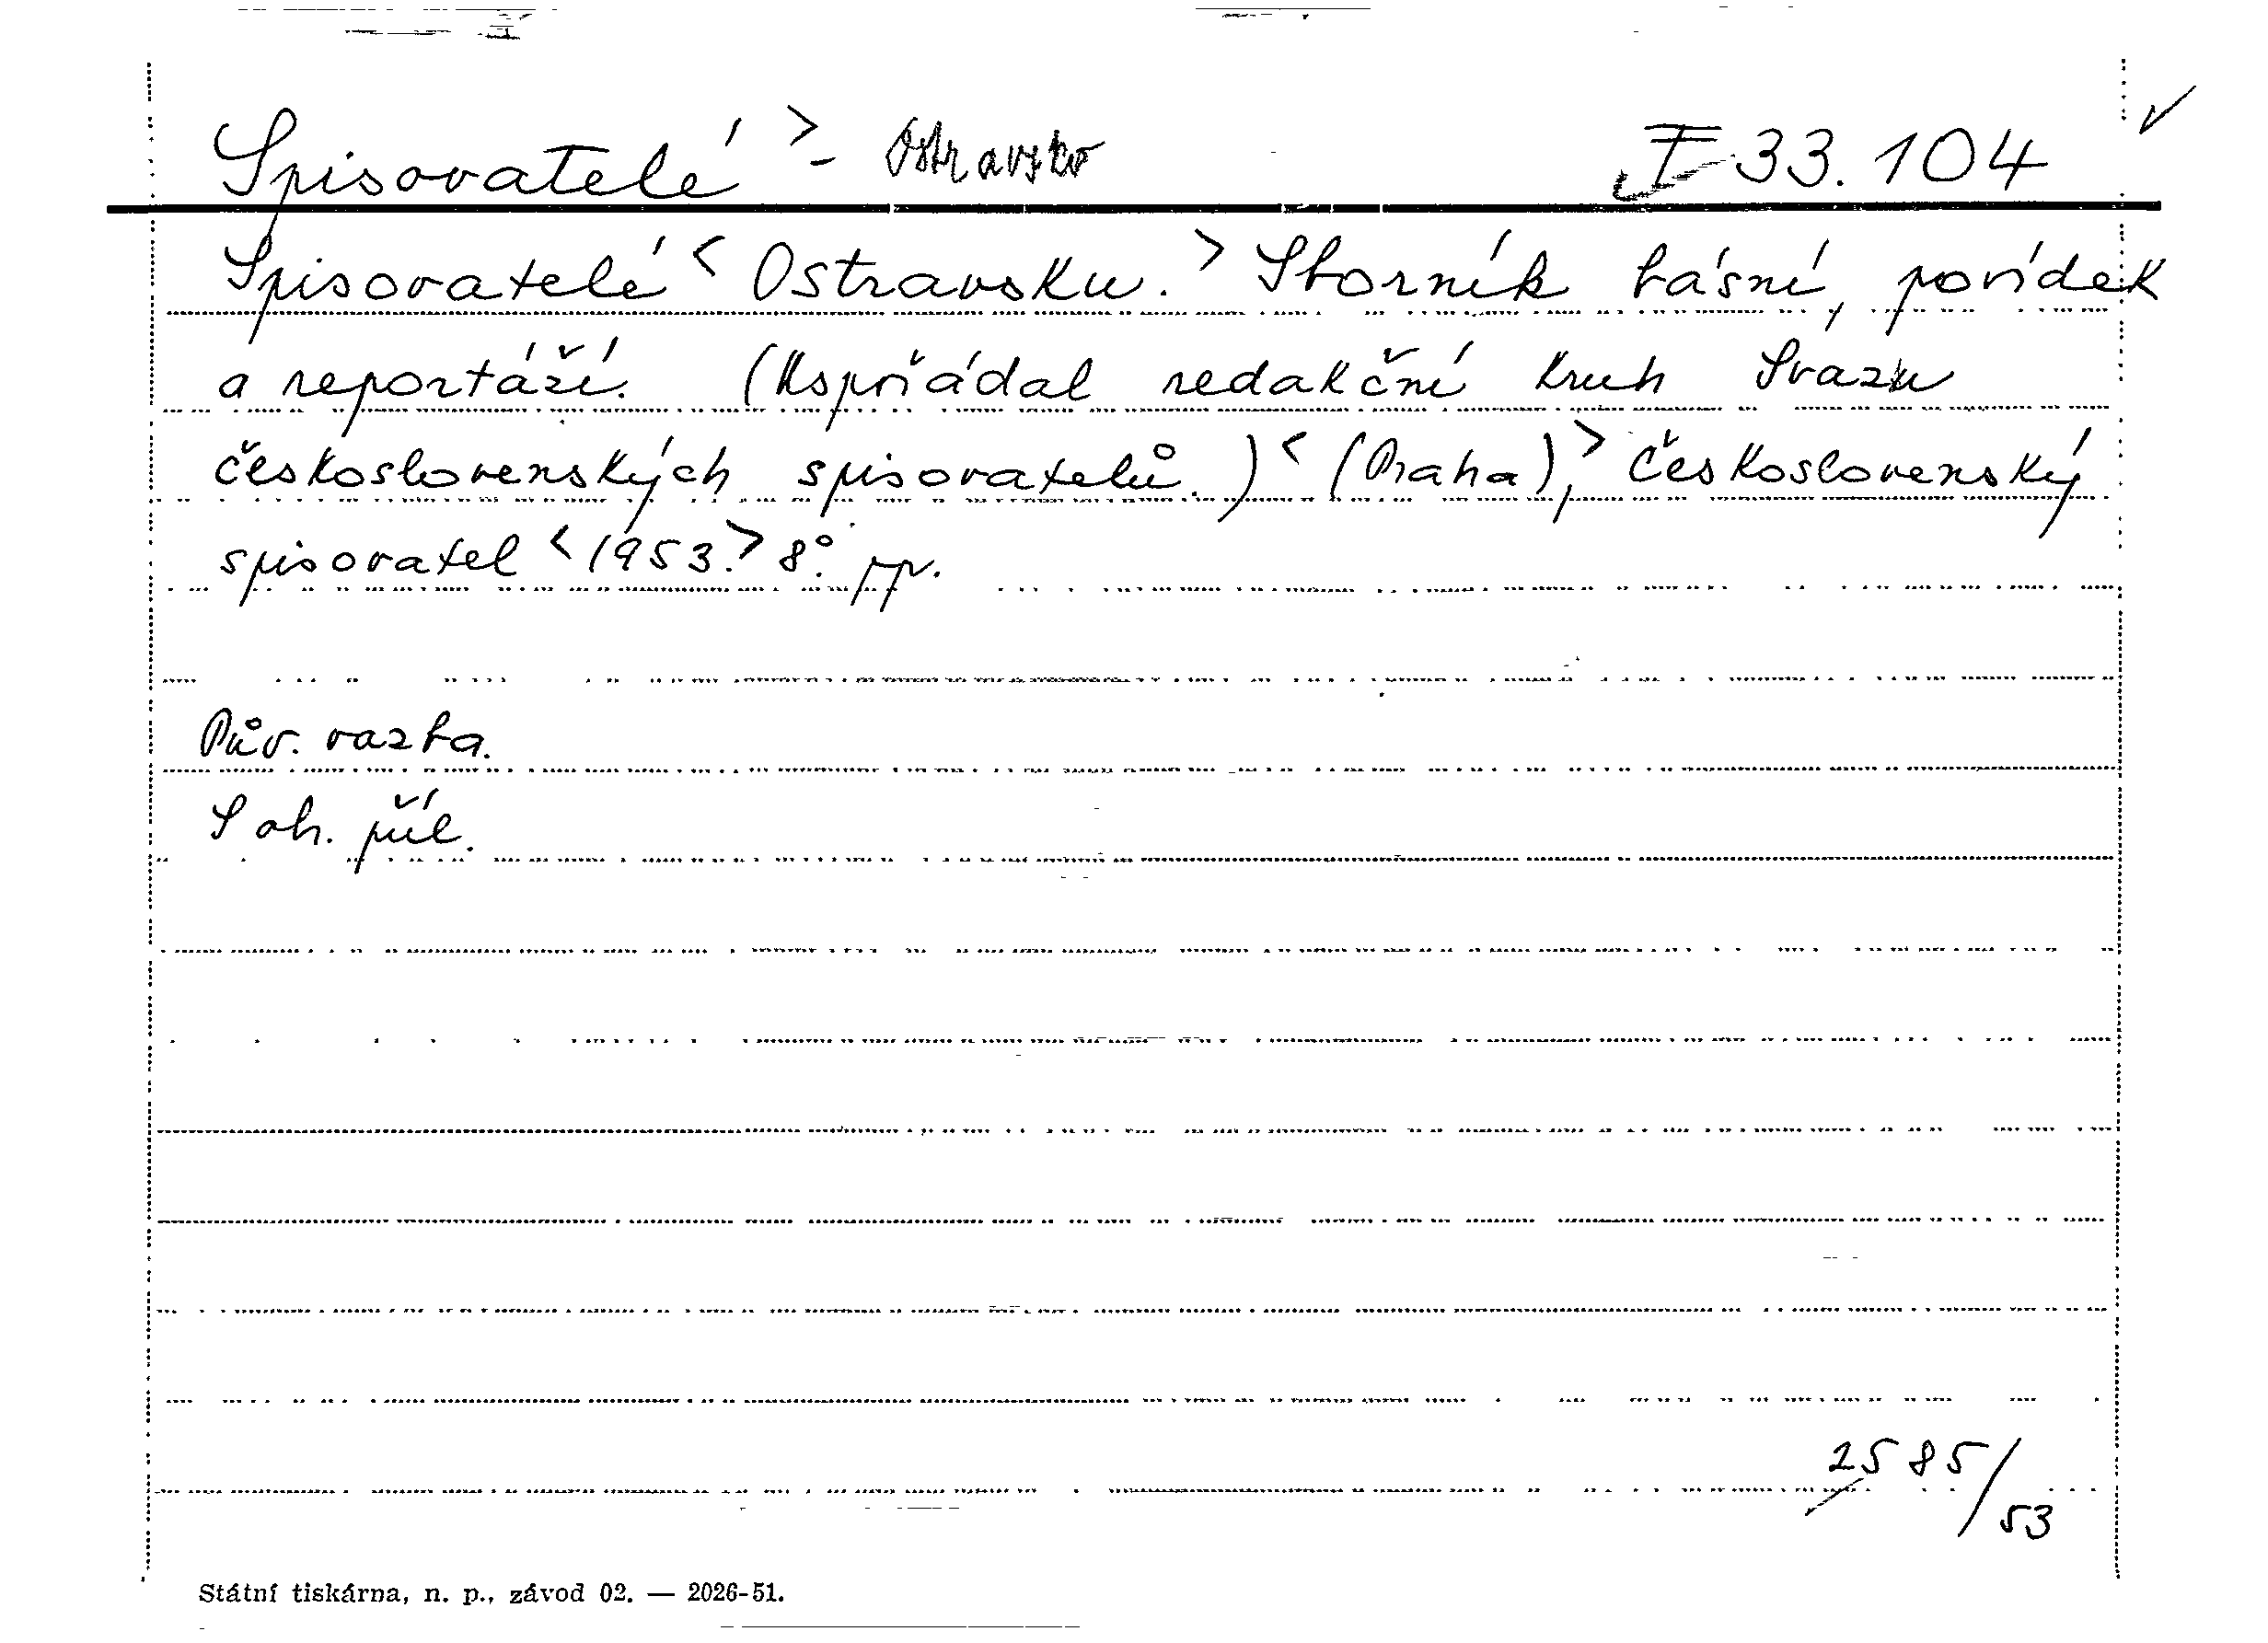 Spisovatelé > - Ostravsko I 33.104 ✓
Spisovatelé < Ostravsku. > Sborník básní, povídek
a reportáží. (Uspořádal redakční kruh Svazu
československých spisovatelů.) < (Praha), > Československý
spisovatel < 1953. > 8°. pp.
Pův. vazba.
S ob. příl.
2585/53
Státní tiskárna, n. p., závod 02. — 2026-51.